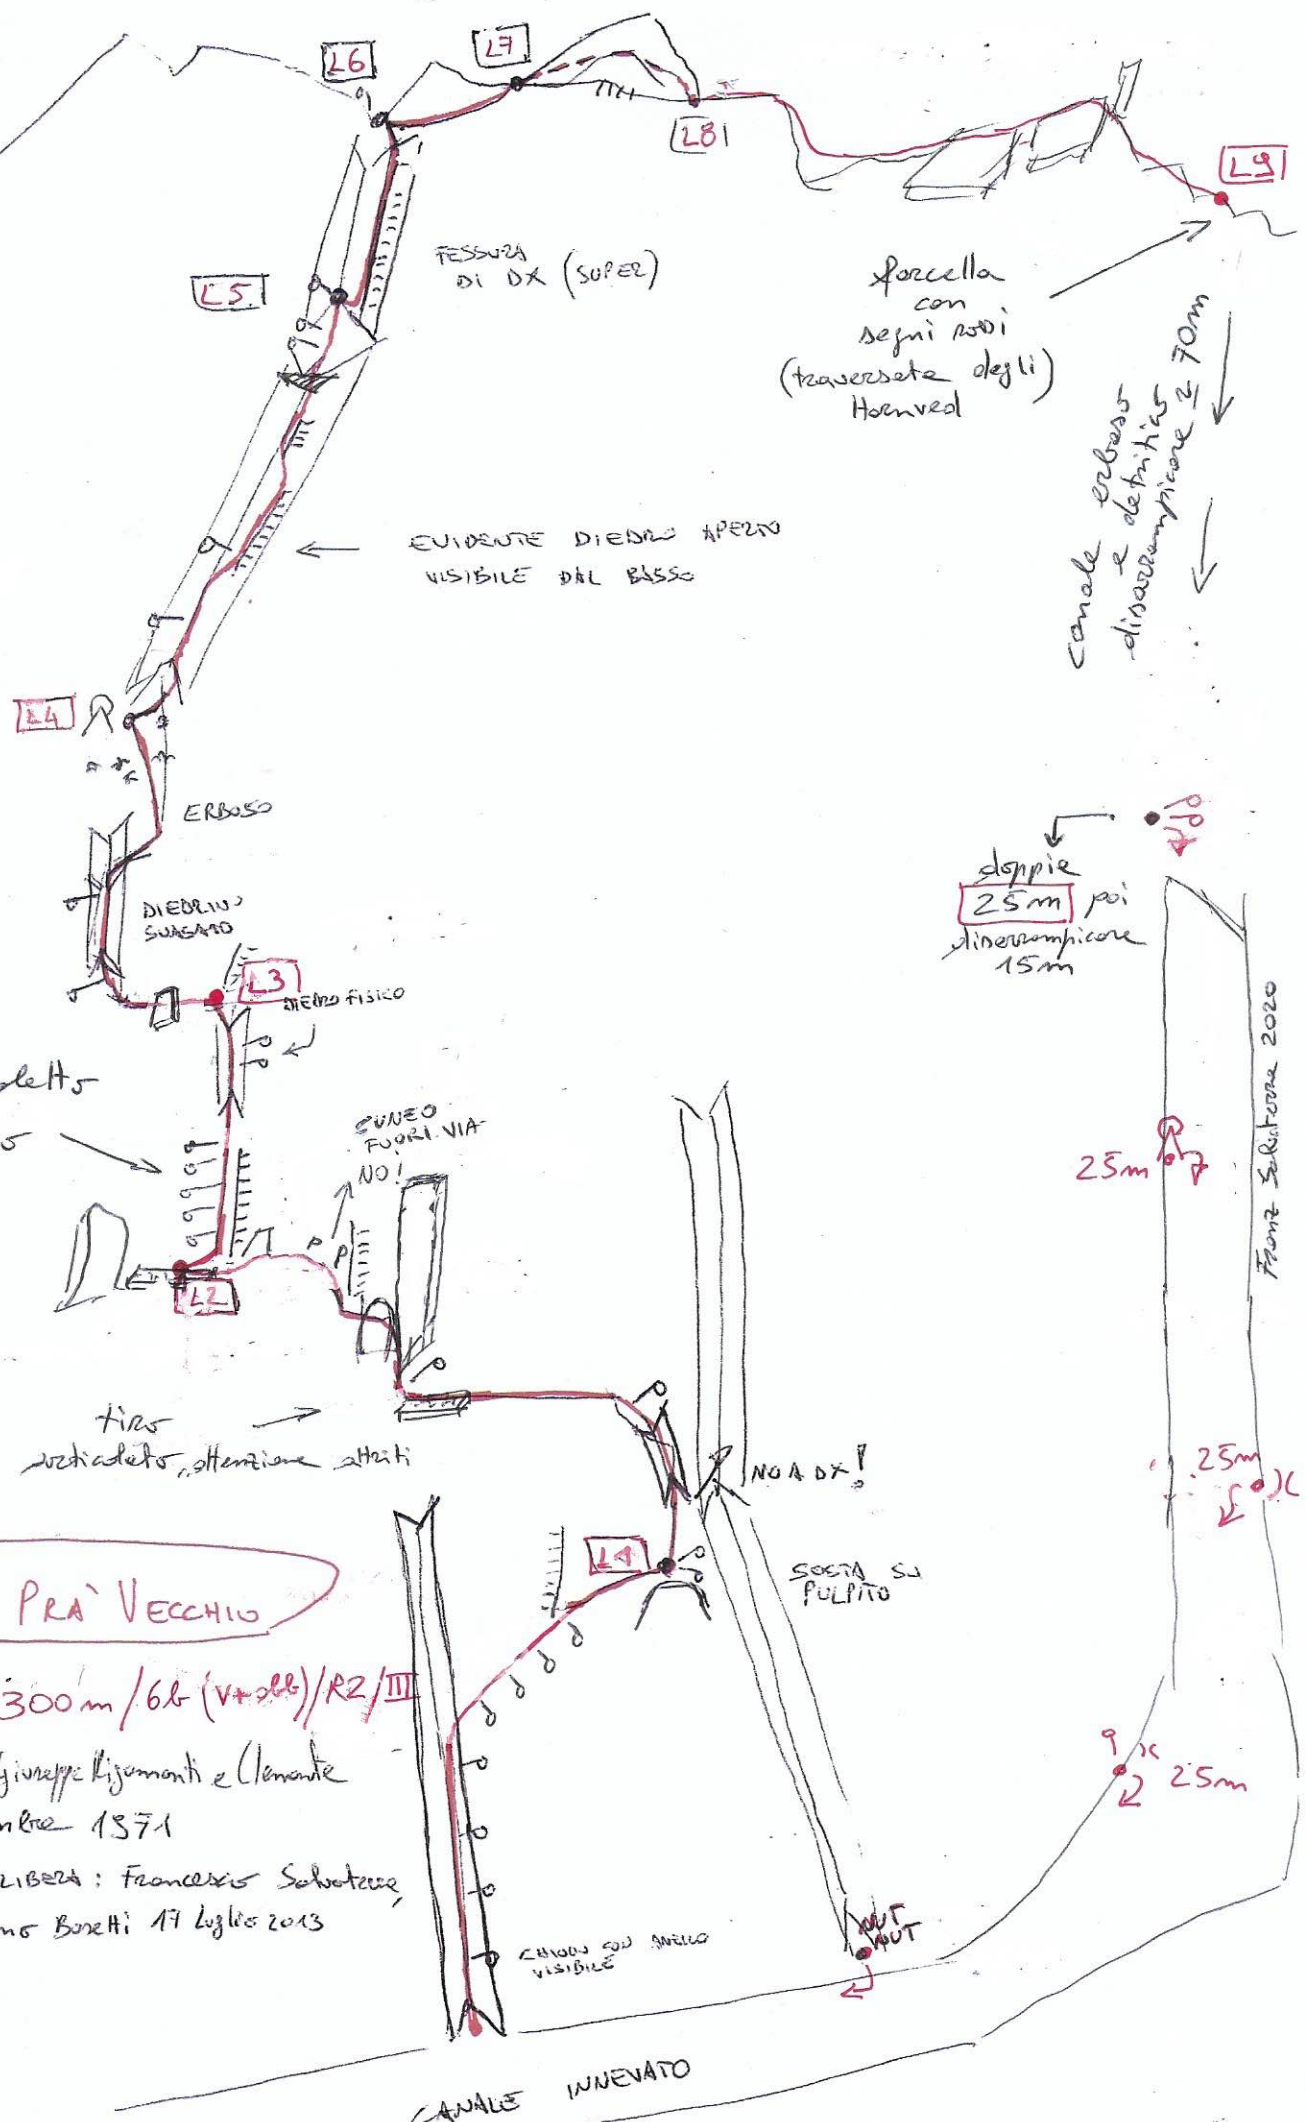 L6
L7
L8
L9
L5
FESSURA
DI DX (SUPER)
forcella
con
segni rossi
(traversata degli)
Hornved
canale erboso
e detritico
disarrampicare ± 70m
EVIDENTE DIEDRO APERTO
VISIBILE DAL BASSO
L4
ERBOSO
DIEDRINO
SVASATO
doppie
25m poi
disarrampicare
15m
L3
DIEDRO FISICO
CUNEO
FUORI VIA
NO!
L2
25m
Franz Salvaterra 2020
tiro
attenzione attriti
NO A DX!
25m
L1
SOSTA SU
PULPITO
PRA' VECCHIO
300m/6b (V+ obb)/R2/III
Giuseppe Rigamonti e Clemente
mbre 1971
LIBERA: Francesco Salvaterra,
no Bosetti 17 Luglio 2013
25m
NUT
NUT
CHIODO CON ANELLO
VISIBILE
CANALE INNEVATO